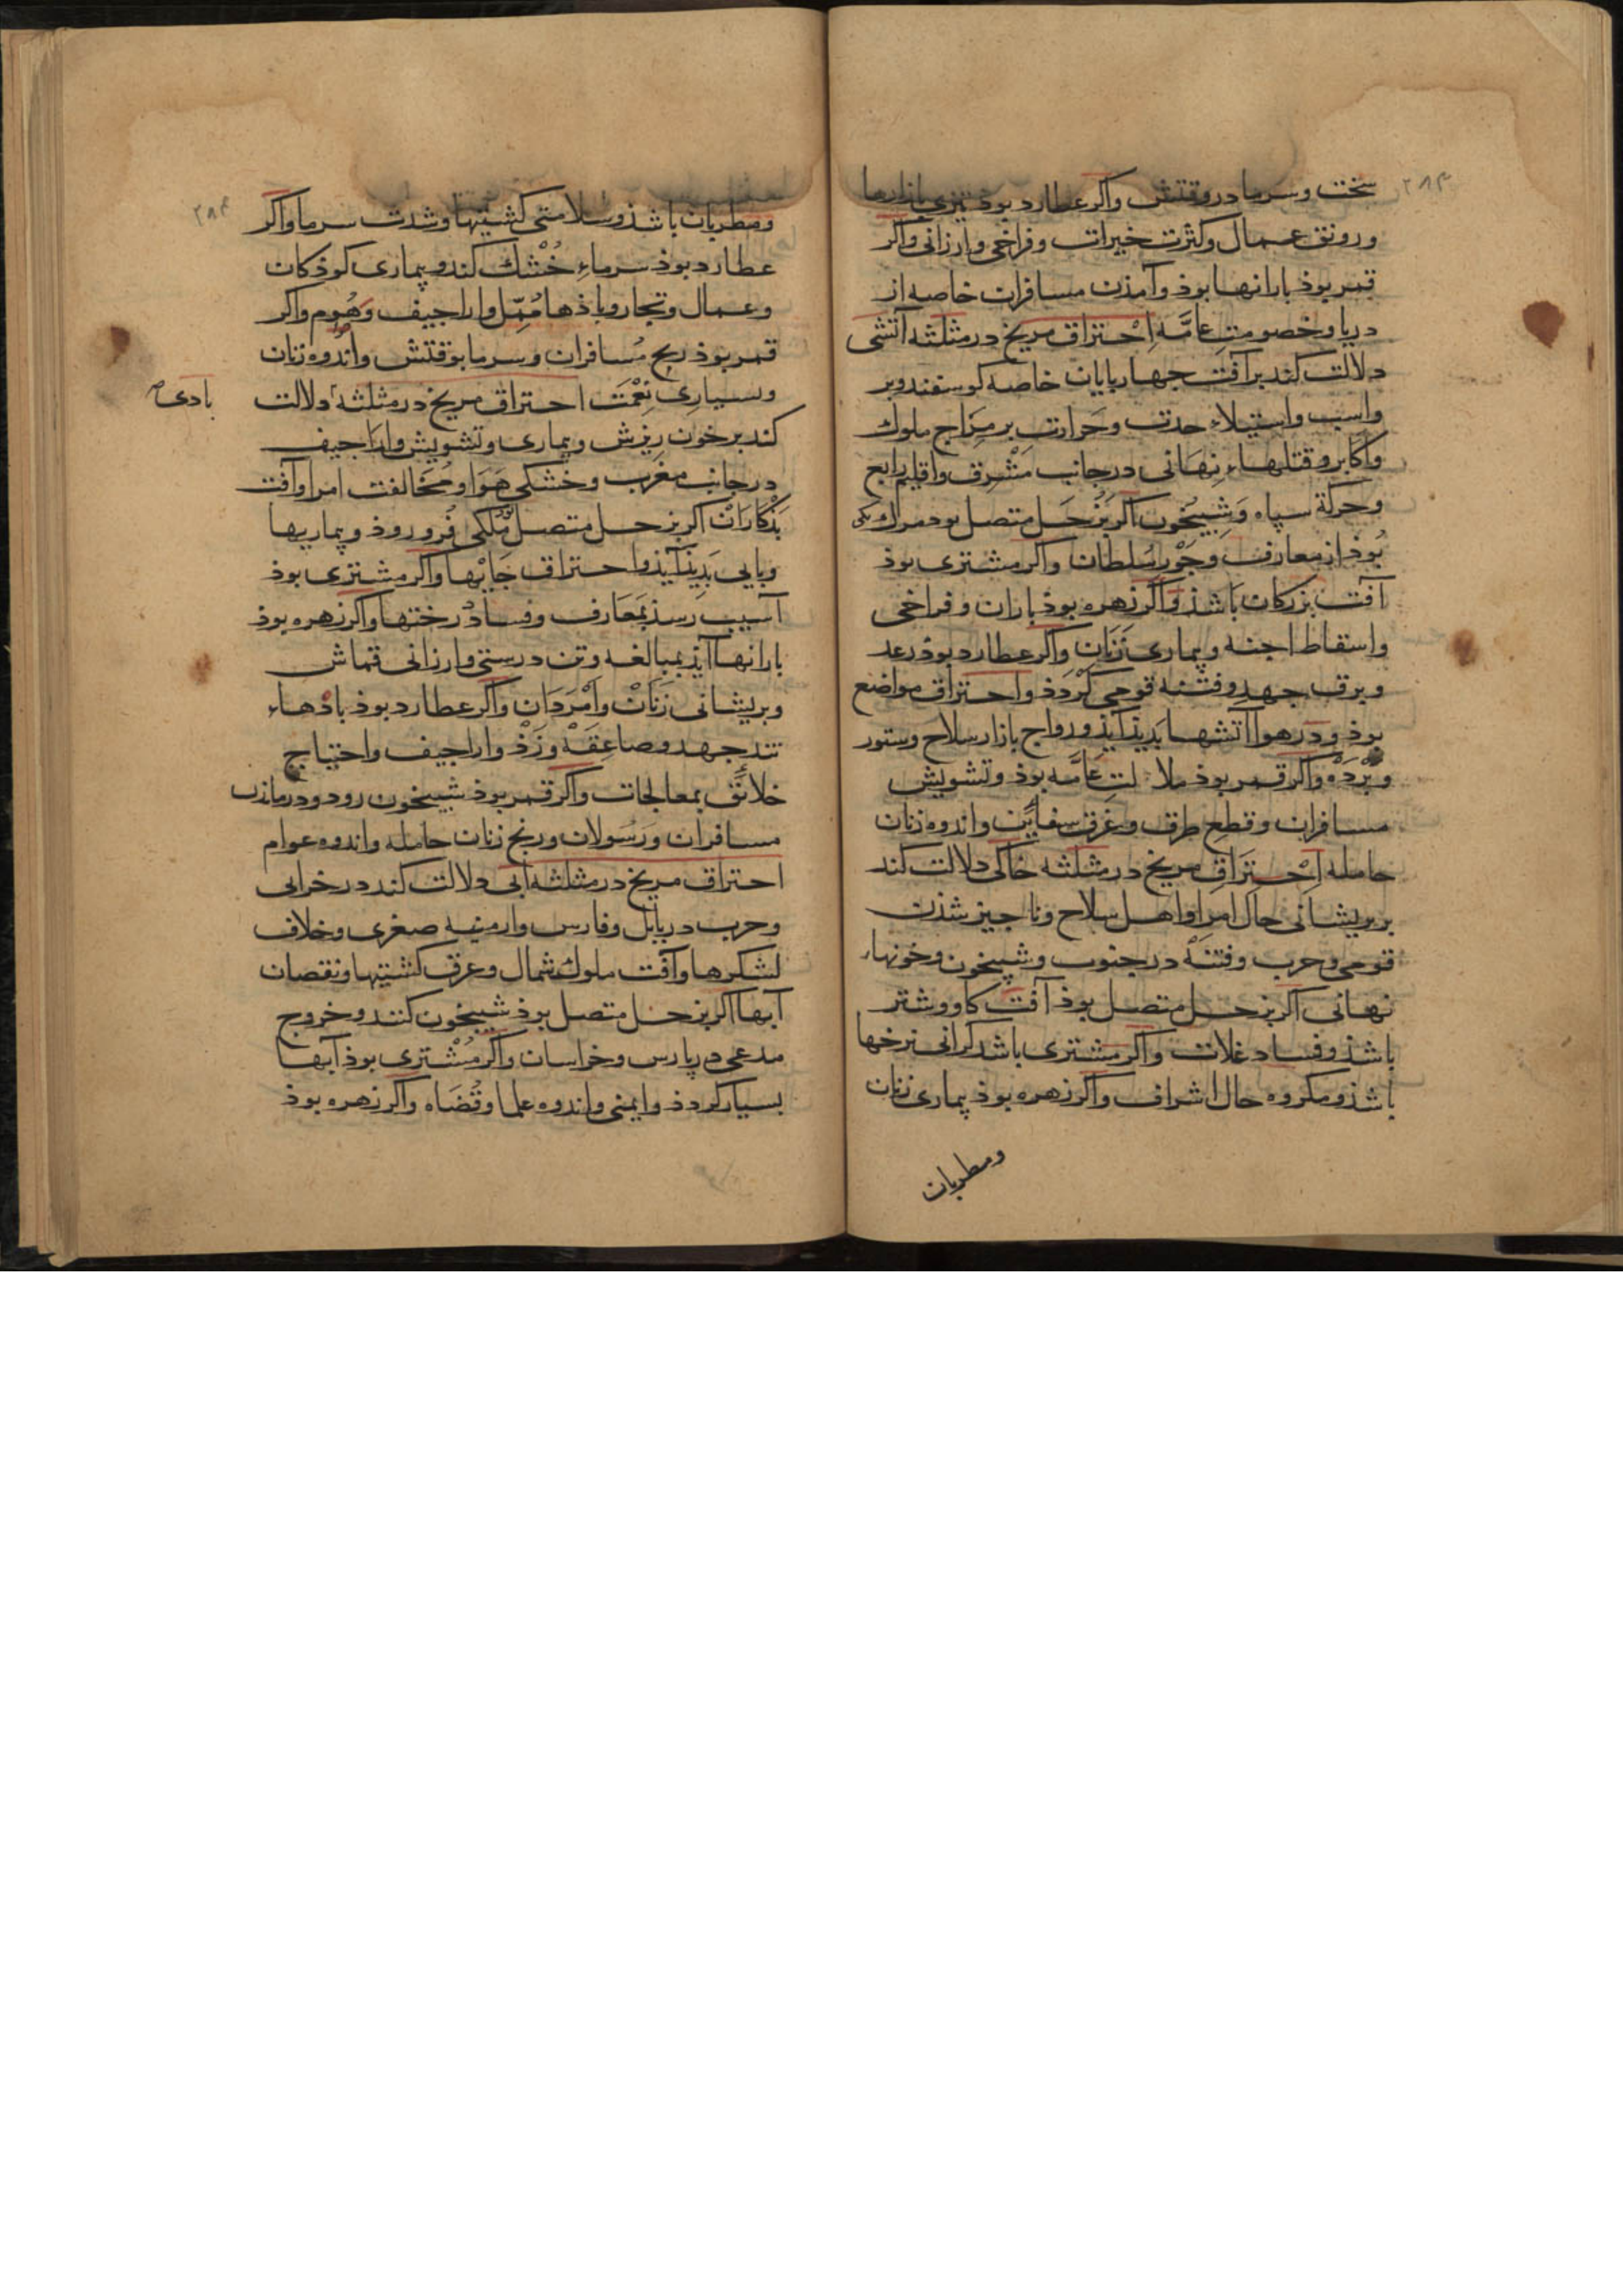 ۲۸۳
سخت و سرما در وقتش واکر عطارد بود تیزی بازارها
ورونق عمال وکثرت خیرات وفراخی وارزانی واکر
قمر بوذ بارانها بوذ وآمذن مسافران خاصه از
دریا وخصومتِ عامَّه اِحْتراق مریخ در مثلثه آتشی
دلالت کند بر آفت جهاربایان خاصه کوسفند وبر
واسب واستیلاء حدت وحَرارت بر مِزَاج ملوك
واکابر وقتلهاءِ نِهَانی در جانب مَشْرِق واقلیم رابع
وحرکة سپاه وَشِبیخون اکر بزُحَل متصل بود مرك یکی
بُوذ از معارف وجَوْرِ سُلطان واکر مشتری بوذ
آفت بزرکان بَاشذ وَاکر زهره بوذ باران و فراخی
واسقاط اجنه وبیماری زَنَان واکر عطارد بوذ رعد
وبرق جهد وفتنه قومی کَرْدَذ واحتراق مواضع
بوذ ودر هوا آتشها بَدِیذ آیذ ورواج بازار سلاح وستور
وبَرْدَه واکر قمر بوذ ملالتِ عَامَّه بوذ وتشویش
مسافران وقطع طرق وغرق سفاین واندوه زنان
حامله اِحْتِرَاقِ مریخ در مثلثه خاکی دلالت کند
بر بریشانی حال امرا واهل سلاح وناجیز شذن
قومی وحرب وفتنه در جنوب وشبیخون وخونهاء
نهانی اکر بزحل متصل بوذ آفت کاو وشتر
باشذ وفساد غلات واکر مشتری باشد کرانی نرخها
باشذ ومکروه حال اشراف واکر زهره بوذ بیماری زنان
ومطربان
۲۸۴
ومطربان باشذ وسلامتی کشتیها وشدت سرما واکر
عطارد بوذ سرماءِ خُشْك کند وبیماری کوذکان
وعمال وتجار وباذها وَاراجیف وَهُموم واکر
قمر بوذ رنج مُسافران وسرما بوقتش واندوه زنان
وبسیاریِ نِعْمَت احتراق مریخ در مثلثه دلالت
بادی صح
کند بر خون ریزش وبیماری وتشویش واراجیف
در جانب مغرب وخشکی هَوَا ومُخالفت امرا وآفت
بَذْکَارَانْ اکر بزحل متصل مَلکی فُرو روذ وبیماریها
وبایی بَدِیذ آیذ واحتراق جَایْها واکر مشتری بوذ
آسیب رسذ بمَعَارف وفساد درختها واکر زهره بوذ
بارانها آیذ بمبالغه وتن درستی وارزانی قماش
وبریشانی زَنَانْ وامْرَدَان واکر عطارد بوذ باذهاءِ
تند جهد وصاعِقَه وَزَذْ واراجیف واحتیاج
خلائق بمعالجات واکر قمر بوذ شبیخون رود ودرماندن
مسافران وَرَسُولان ورنج زنان حامله واندوه عوام
احتراق مریخ در مثلثه آبی دلالت کند در خرابی
وحرب در بابل وفارس وارمنیه صغری وخلاف
لشکرها وآفت ملوك شمال وغرق کشتیها ونقصان
آبها اکر بزحل متصل بوذ شبیخون کنند وخروج
مدعی در پارس وخراسان واکر مُشْتری بوذ آبها
بسیار کردذ وایمنی واندوه علما وقُضَاه واکر زهره بوذ